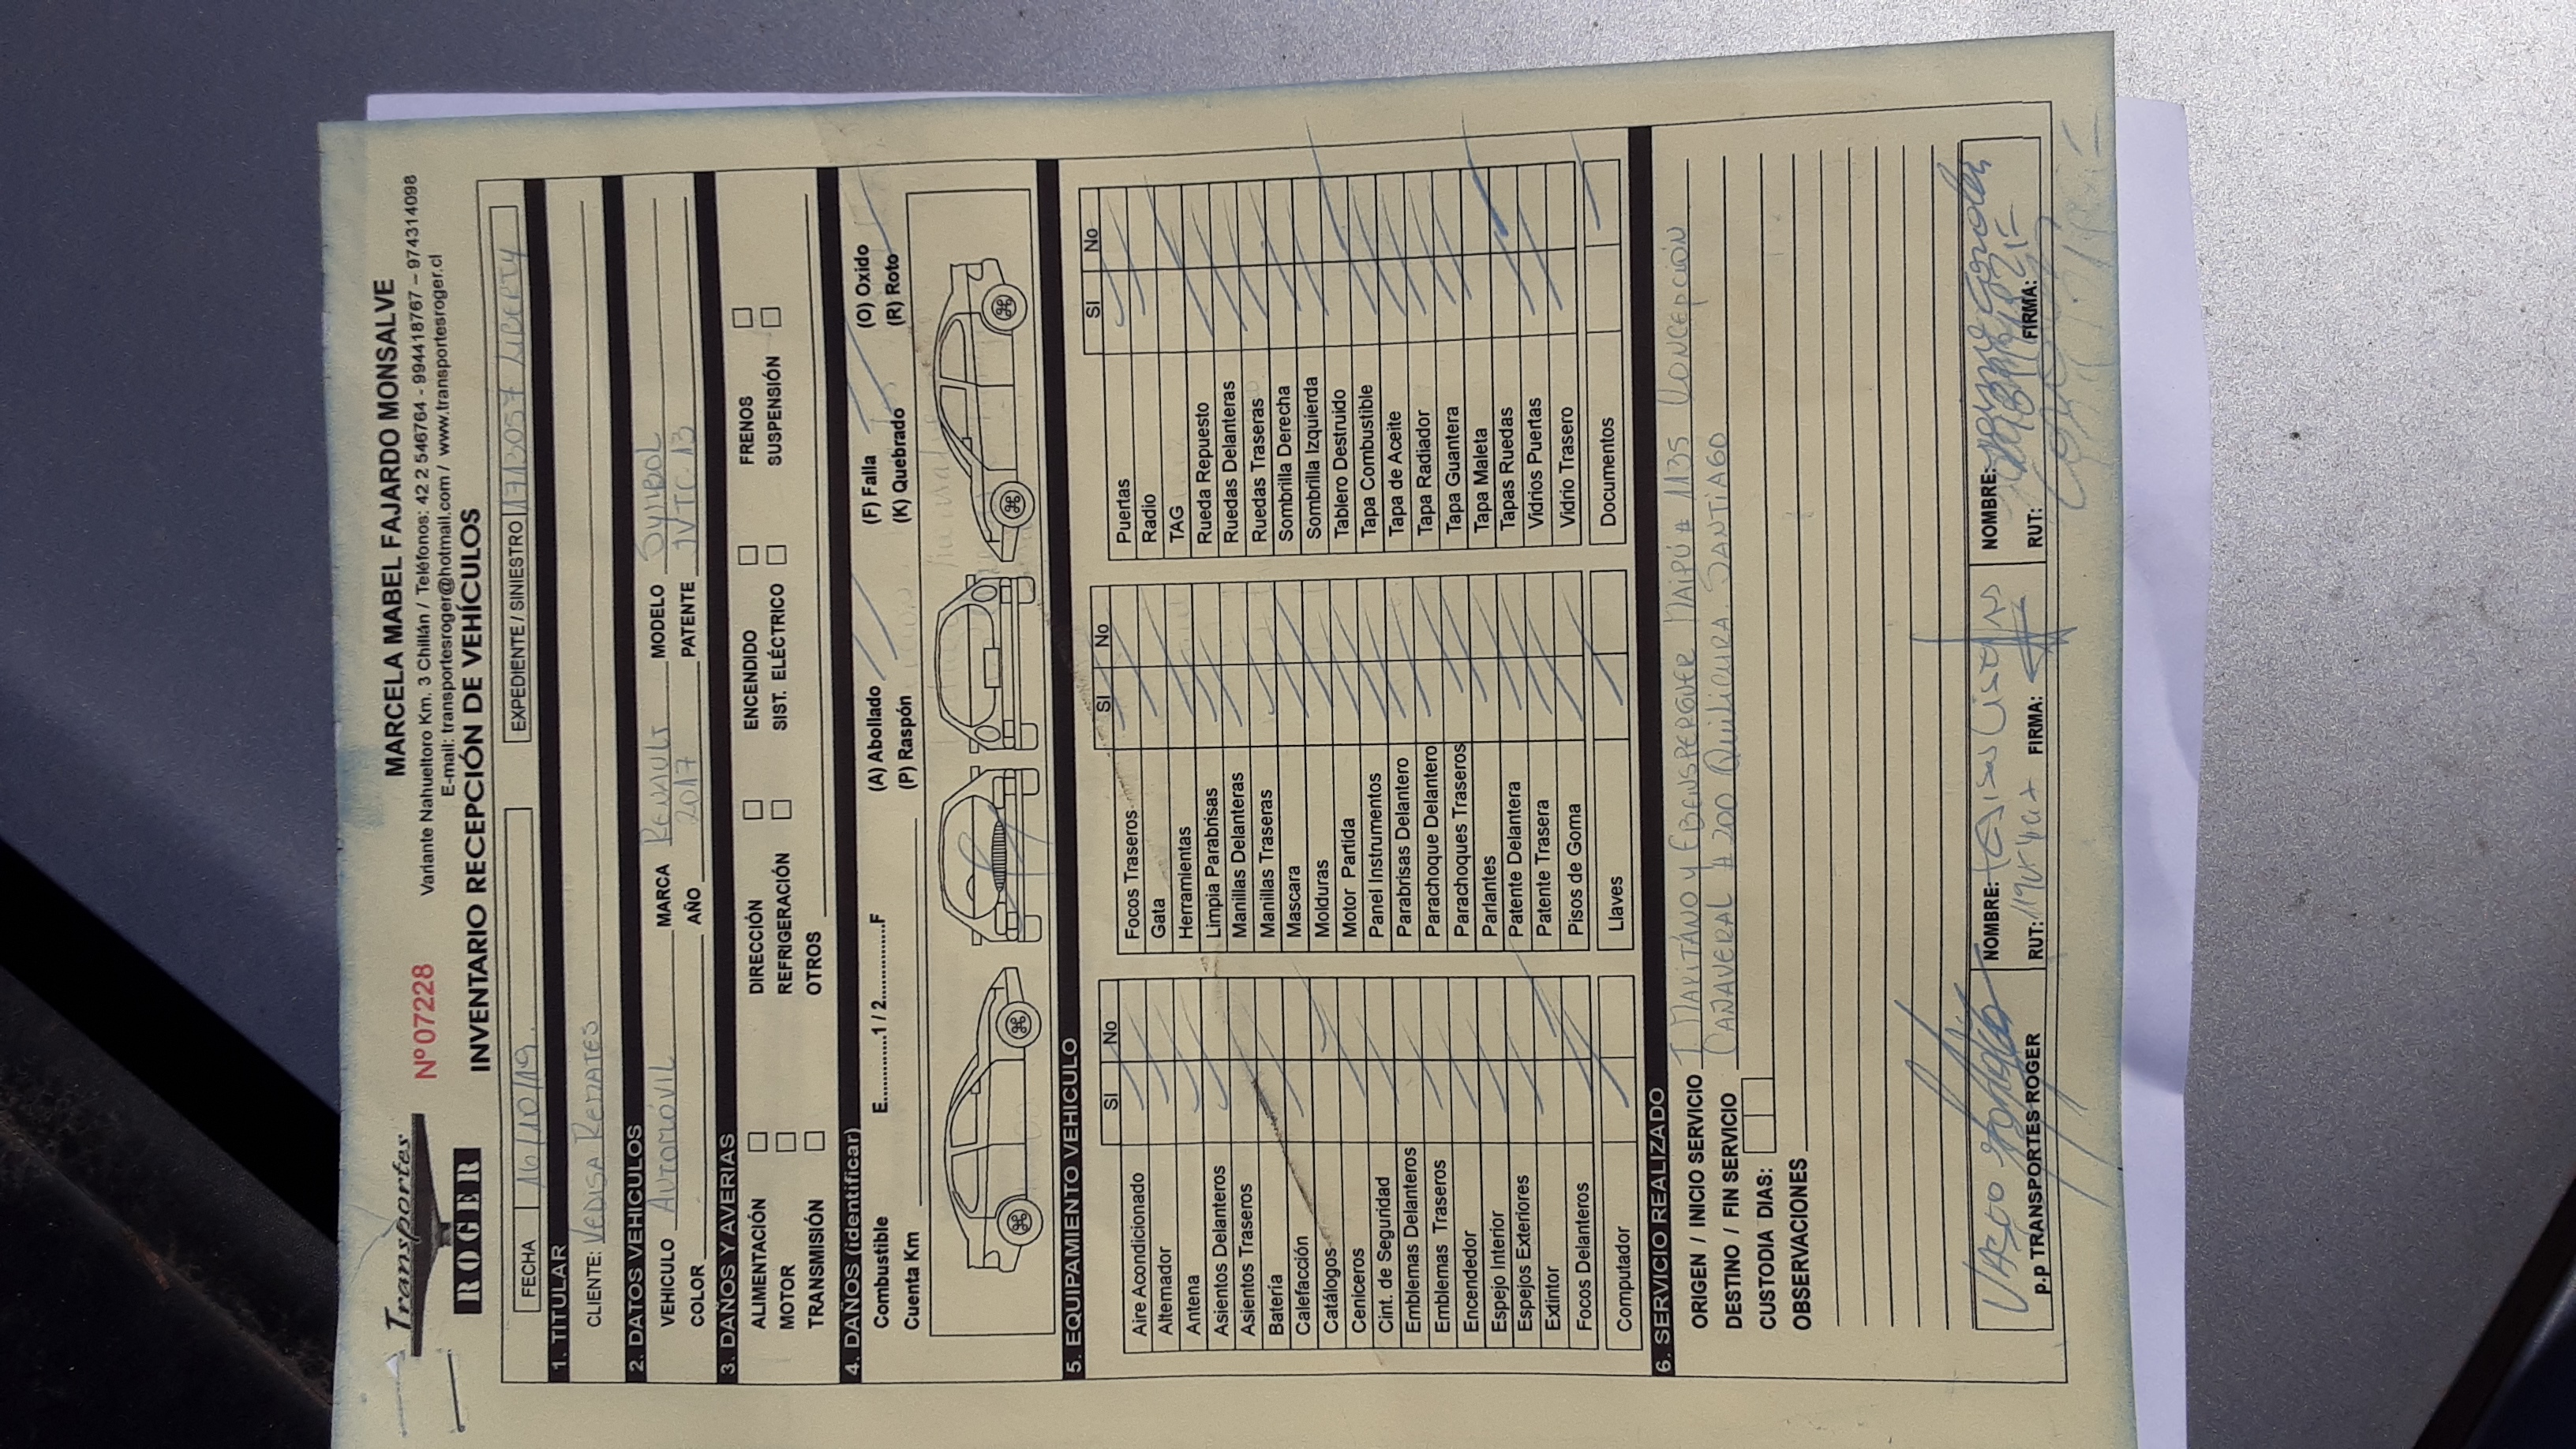 Transportes
ROGER
Nº 07228
MARCELA MABEL FAJARDO MONSALVE
Variante Nahueltoro Km. 3 Chillán / Teléfonos: 42 2 546764 - 994418767 – 974314098
E-mail: transportesroger@hotmail.com / www.transportesroger.cl
INVENTARIO RECEPCIÓN DE VEHÍCULOS
FECHA 16/10/19. EXPEDIENTE / SINIESTRO 1713057 LIBERTY
1. TITULAR
CLIENTE: VEDISA REMATES
2. DATOS VEHICULOS
VEHICULO AUTOMÓVIL MARCA RENAULT MODELO SYMBOL
COLOR AÑO 2017 PATENTE JVTC-13
3. DAÑOS Y AVERIAS
ALIMENTACIÓN DIRECCIÓN ENCENDIDO FRENOS
MOTOR REFRIGERACIÓN SIST. ELÉCTRICO SUSPENSIÓN
TRANSMISIÓN OTROS
4. DAÑOS (identificar)
Combustible E............1 / 2..............F (A) Abollado (F) Falla (O) Oxido
Cuenta Km (P) Raspón (K) Quebrado (R) Roto
5. EQUIPAMIENTO VEHICULO
SI No SI No SI No
Aire Acondicionado Focos Traseros Puertas
Alternador Gata Radio
Antena Herramientas TAG
Asientos Delanteros Limpia Parabrisas Rueda Repuesto
Asientos Traseros Manillas Delanteras Ruedas Delanteras
Batería Manillas Traseras Ruedas Traseras
Calefacción Mascara Sombrilla Derecha
Catálogos Molduras Sombrilla Izquierda
Ceniceros Motor Partida Tablero Destruido
Cint. de Seguridad Panel Instrumentos Tapa Combustible
Emblemas Delanteros Parabrisas Delantero Tapa de Aceite
Emblemas Traseros Parachoque Delantero Tapa Radiador
Encendedor Parachoques Traseros Tapa Guantera
Espejo Interior Parlantes Tapa Maleta
Espejos Exteriores Patente Delantera Tapas Ruedas
Extintor Patente Trasera Vidrios Puertas
Focos Delanteros Pisos de Goma Vidrio Trasero
Computador Llaves Documentos
6. SERVICIO REALIZADO
ORIGEN / INICIO SERVICIO TMARITANO Y EBENSPERGUER MAIPÚ # 1135 CONCEPCIÓN
DESTINO / FIN SERVICIO CAÑAVERAL # 200 QUILICURA. SANTIAGO
CUSTODIA DIAS:
OBSERVACIONES
p.p TRANSPORTES ROGER
NOMBRE: NOMBRE:
RUT: FIRMA: RUT: FIRMA: